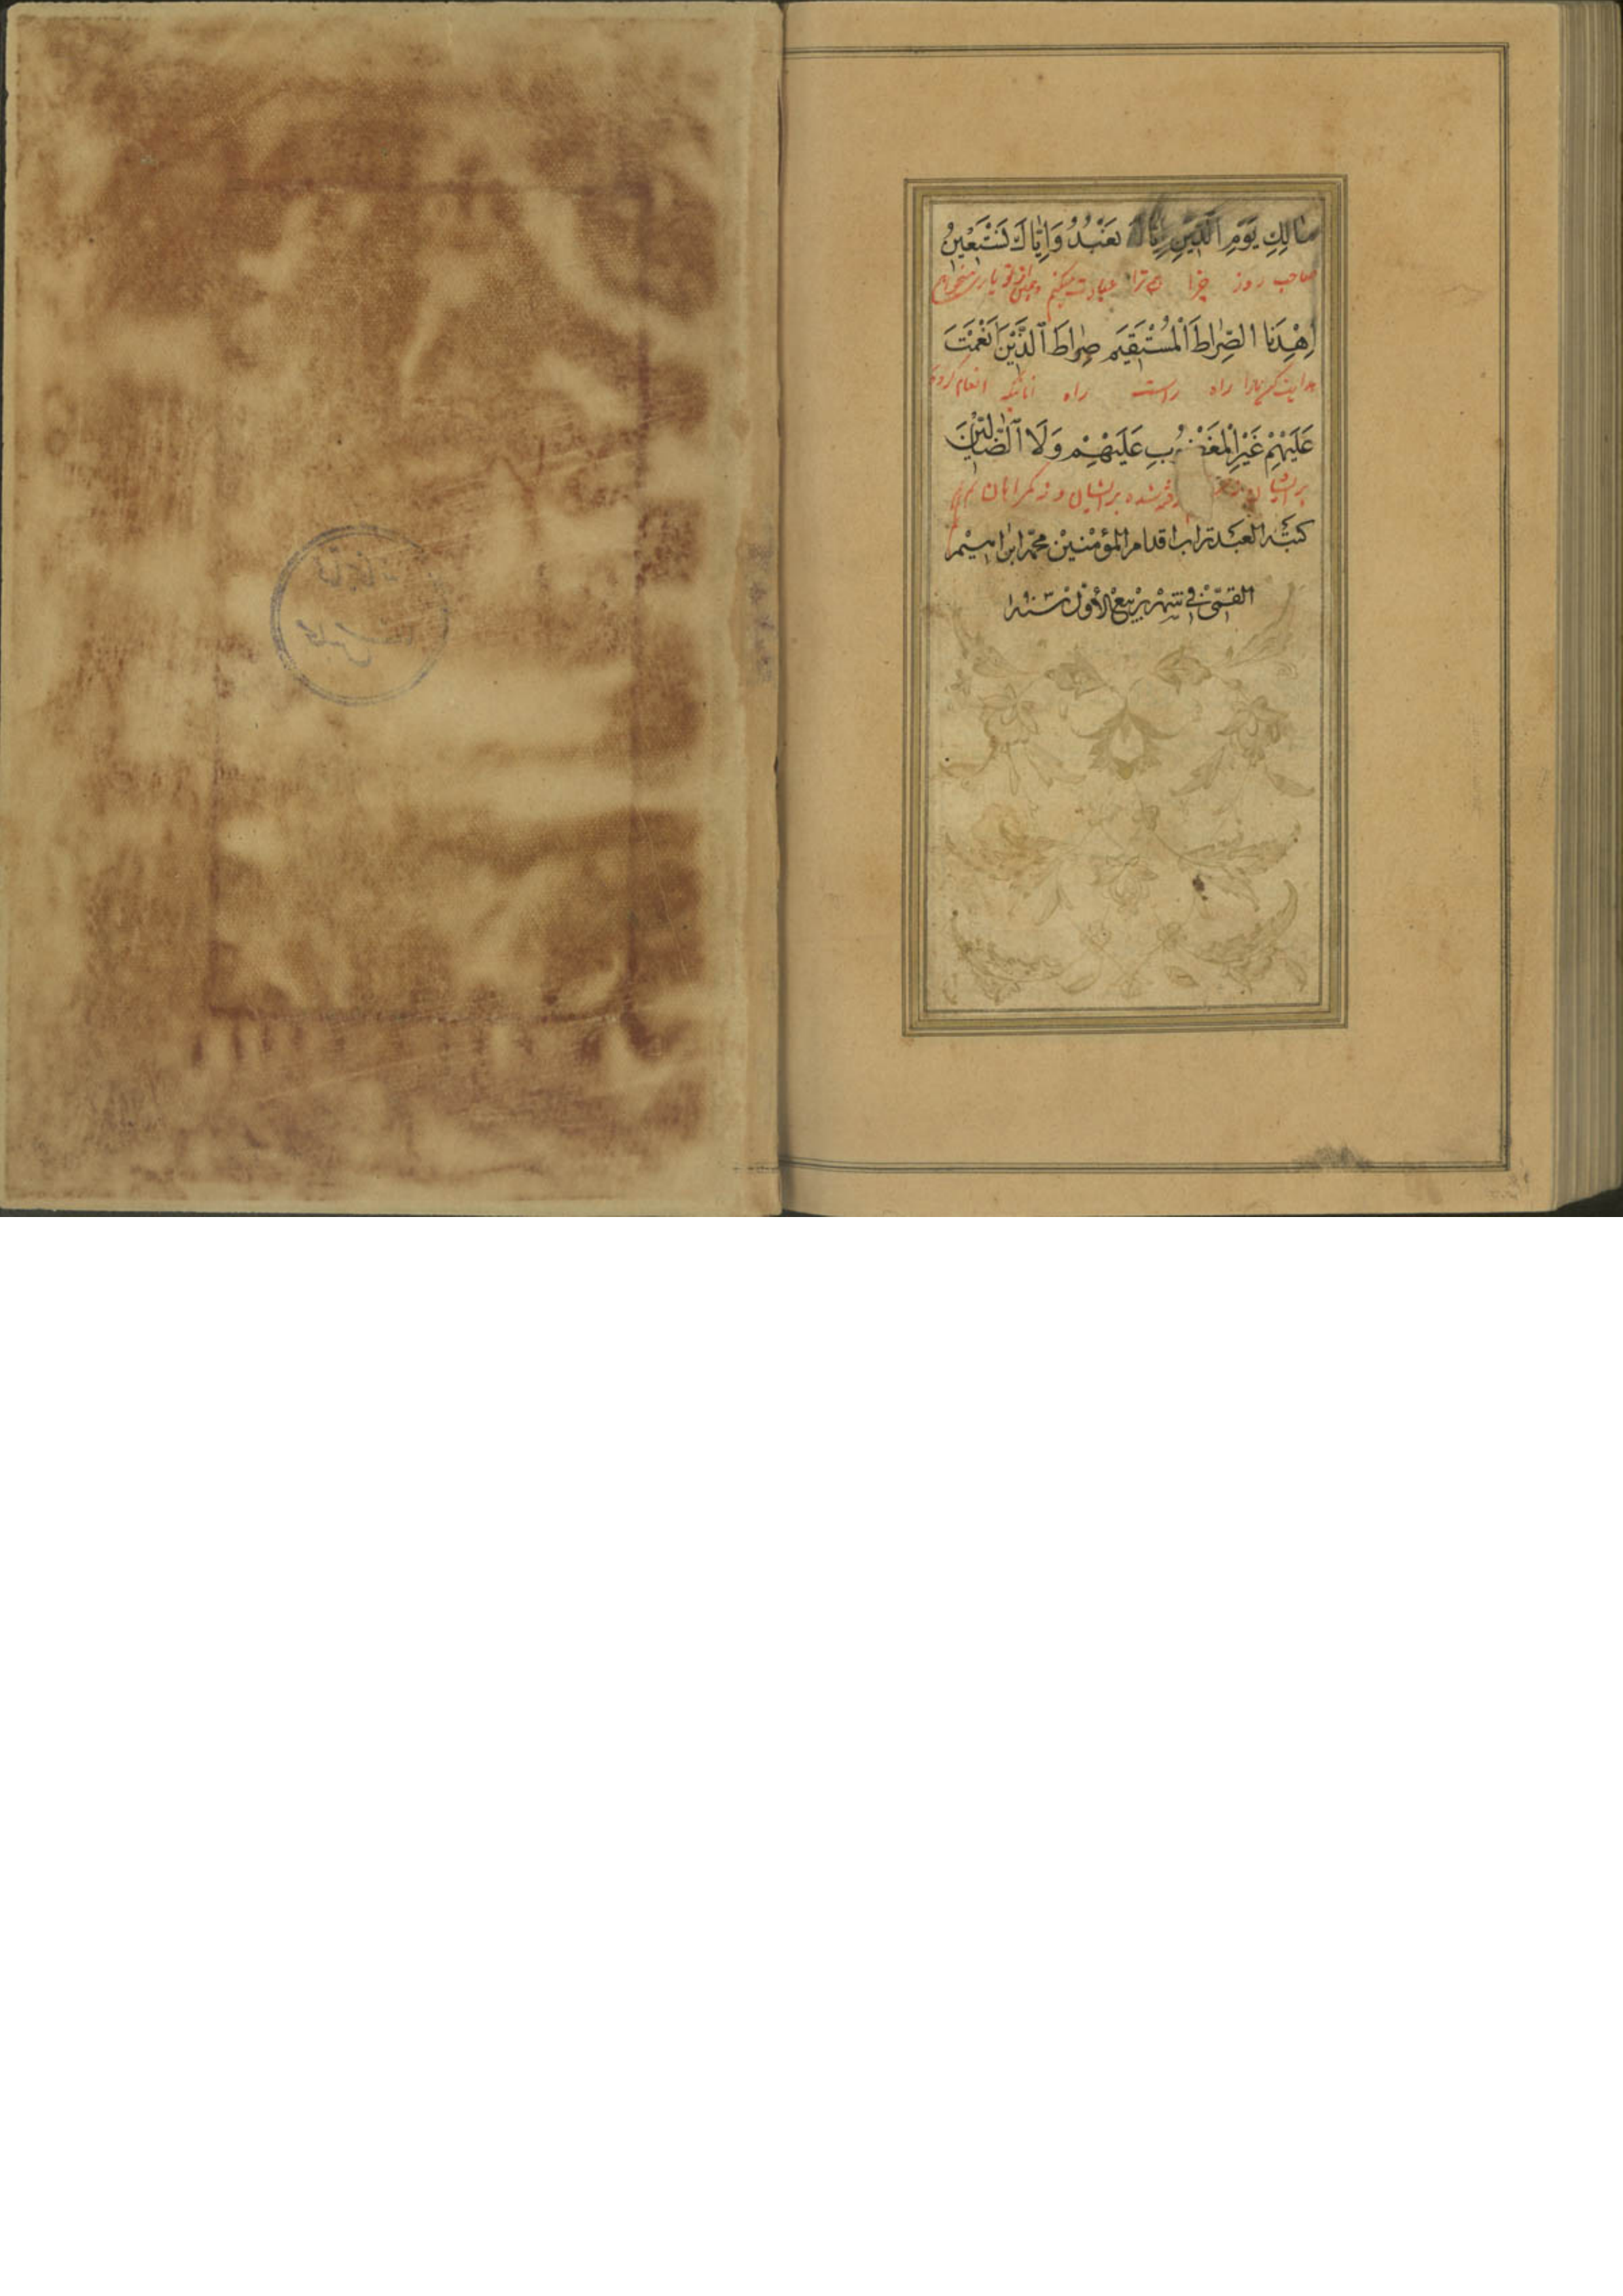 مَالِكِ يَوْمِ الدِّينِ إِيَّاكَ نَعْبُدُ وَإِيَّاكَ نَسْتَعِينُ
صاحب روز جزا ترا عبادت میکنم یاری میخواهم
اِهْدِنَا الصِّرَاطَ الْمُسْتَقِيمَ صِرَاطَ الَّذِينَ اَنْعَمْتَ
هدایت کن مارا راه راست راه آنانکه انعام کردی
عَلَيْهِمْ غَيْرِ الْمَغْضُوبِ عَلَيْهِمْ وَلَا الضَّالِّينَ
بر ایشان شده بر ایشان و نه گمراهان
كتبه العبد تراب اقدام المؤمنين محمد ابراهيم
القمی فی شهر ربیع الأول سنه